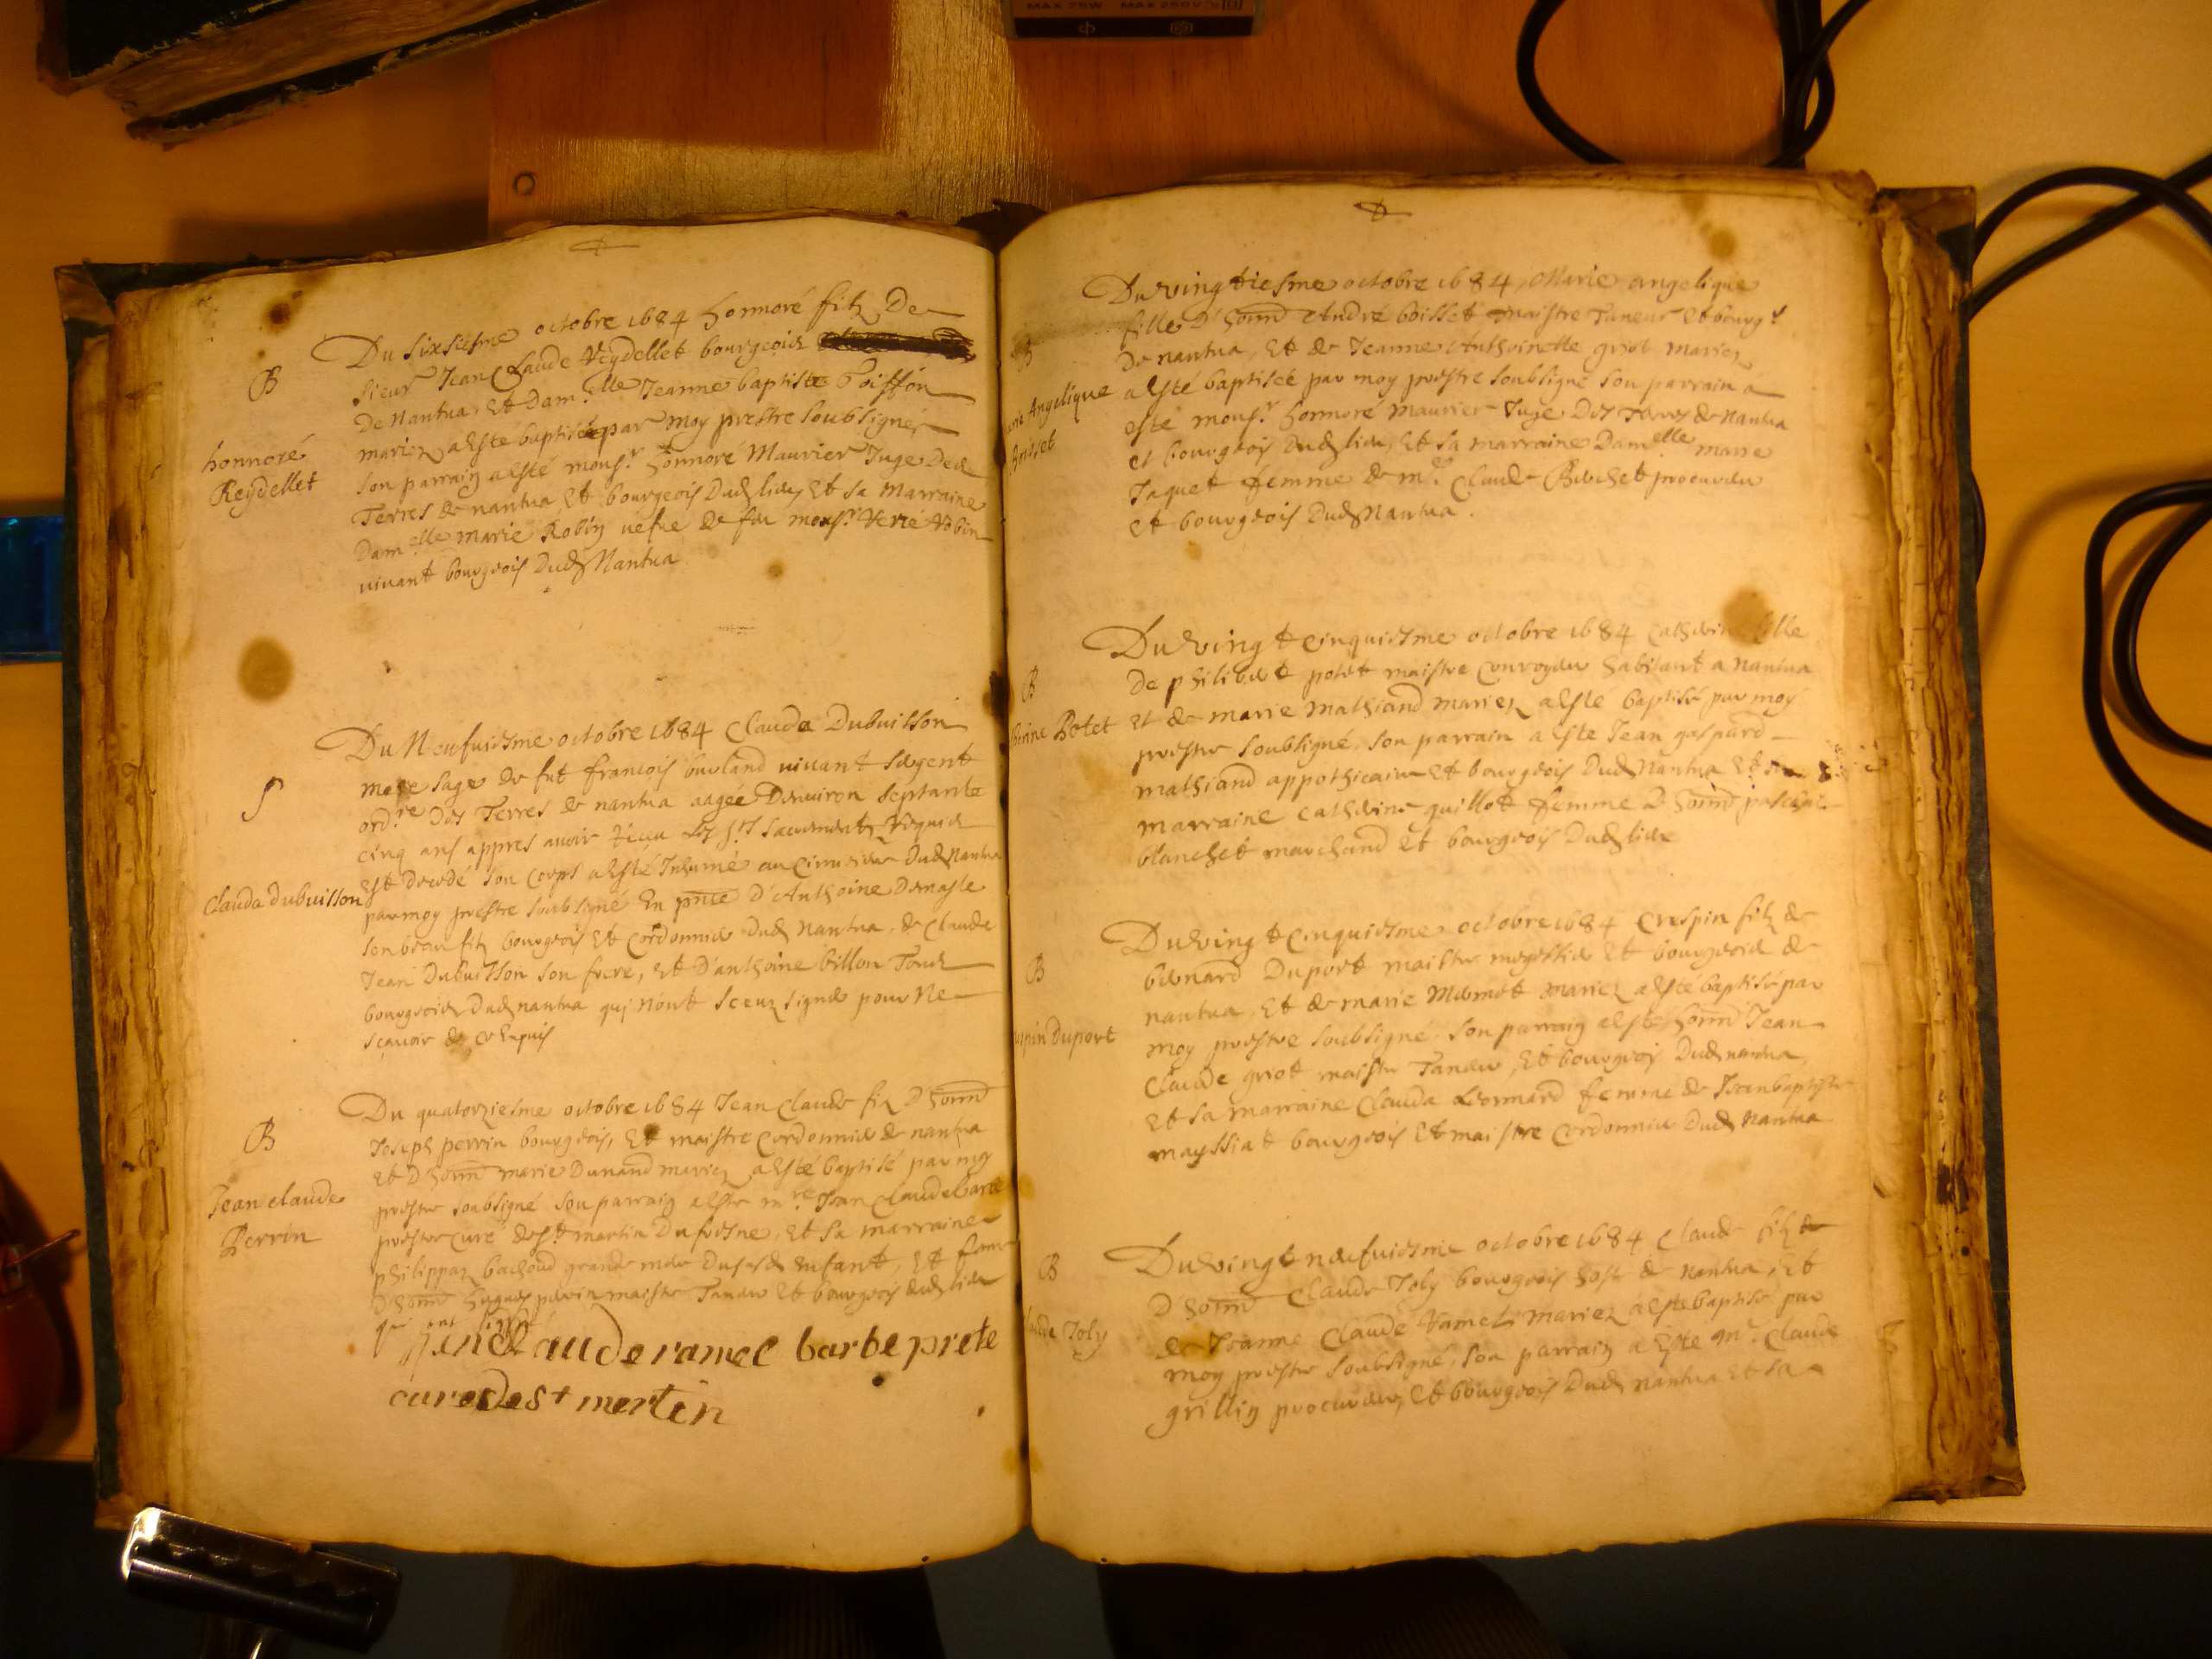 MAX 75W MAX 250V
B
honnoré
Reydellet
Du sixsiesme octobre 1684 honnoré filz De
sieur Jean Claude Reydellet bourgeois
De Nantua, Et Dam.elle Jeanne baptiste Poisson
mariez a esté baptisé par moy prestre soubsigné
son parrain a esté mons.r honnoré Maurier Juge Des
Terres de nantua Et bourgeois Dud lieu Et sa Marraine
Dam.elle marie Robin vefve de feu mons.r Robin
vivant bourgeois Dud Nantua
S
Clauda dubuisson
Du Neufviesme octobre 1684 Clauda Dubuisson
mere sage de fut francois vivant sergent
ord.re Des Terres de nantua aagée Denviron septante
cinq ans appres avoir receu Les S.ts sacrements
Est decedé son corps a esté Inhumé au cimetiere Dud Nantua
par moy prestre soubsigné En pnce D'Anthoine
son beau filz bourgeois Et cordonnier Dud Nantua, de Claude
Jean Dubuisson son frere, Et D'anthoine billon Tous
bourgeois Dud nantua qui n'ont sceuz signer pour Ne
scavoir de ce Enquis
B
Jean claude
Perrin
Du quatorziesme octobre 1684 Jean Claude filz D'honn
Joseph perrin bourgeois, Et maistre Cordonnier de nantua
Et D'honn marie Dunand mariez a esté baptisé par moy
prestre soubsigné son parrain a esté m.re Jean Claude barbe
prestre curé de st martin Dufresne, Et sa marraine
philippaz bachod grande mere Dusd Enfant, Et femme
D'honn hugues perrin maistre Taneur Et bourgeois dud lieu
qui ont signé
Jenclauderamel barbe prete
cure de st mertin
B
Marie Angelique
Boisset
Du vingtiesme octobre 1684, Marie angelique
fille D'honn André boisset maistre Taneur Et bourg.s
De nantua, Et de Jeanne Anthoinette griot mariez
a esté baptisée par moy prestre soubsigné son parrain a
esté mons.r honnoré Maurier Juge Des Terres de Nantua
et bourgeois Dud lieu, Et sa marraine Dam.elle marie
Jaquet femme de m.e Claude procureur
Et bourgeois Dud Nantua.
B
Potet
Du vingt cinquiesme octobre 1684 Catherine fille
De philibert potet maistre Conroyeur habitant a nantua
Et de marie mathiand mariez a esté baptisé par moy
prestre soubsigné, son parrain a este Jean gaspard
mathiand appothicaire Et bourgeois Dud Nantua Et sa
marraine Catherine guillot femme D'honn
blanchet marchand Et bourgeois Dud lieu
B
Crespin Duport
Du vingt Cinquiesme octobre 1684 Crespin filz de
bernard Duport maistre megissier Et bourgeois de
nantua, Et de marie Mermet mariez a esté baptisé par
moy prestre soubsigné. son parrain a este honn Jean
Claude griot maistre Taneur, Et bourgeois Dud nantua,
Et sa marraine Clauda Leonnard femme de Jean baptiste
mayssiat bourgeois Et maistre Cordonnier Dud Nantua
B
Claude Joly
Du vingt neufviesme octobre 1684 Claude filz de
D'honn Claude Joly bourgeois hoste de Nantua, Et
de Jeanne Claude Ramel mariez a esté baptisé par
moy prestre soubsigné, son parrain a Este m.e Claude
grillin procureur, Et bourgeois Dud nantua Et sa